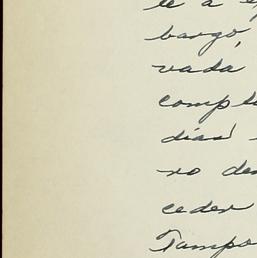 te a
bargo,
vada
comple
dias
ro den
ceder
Tampo